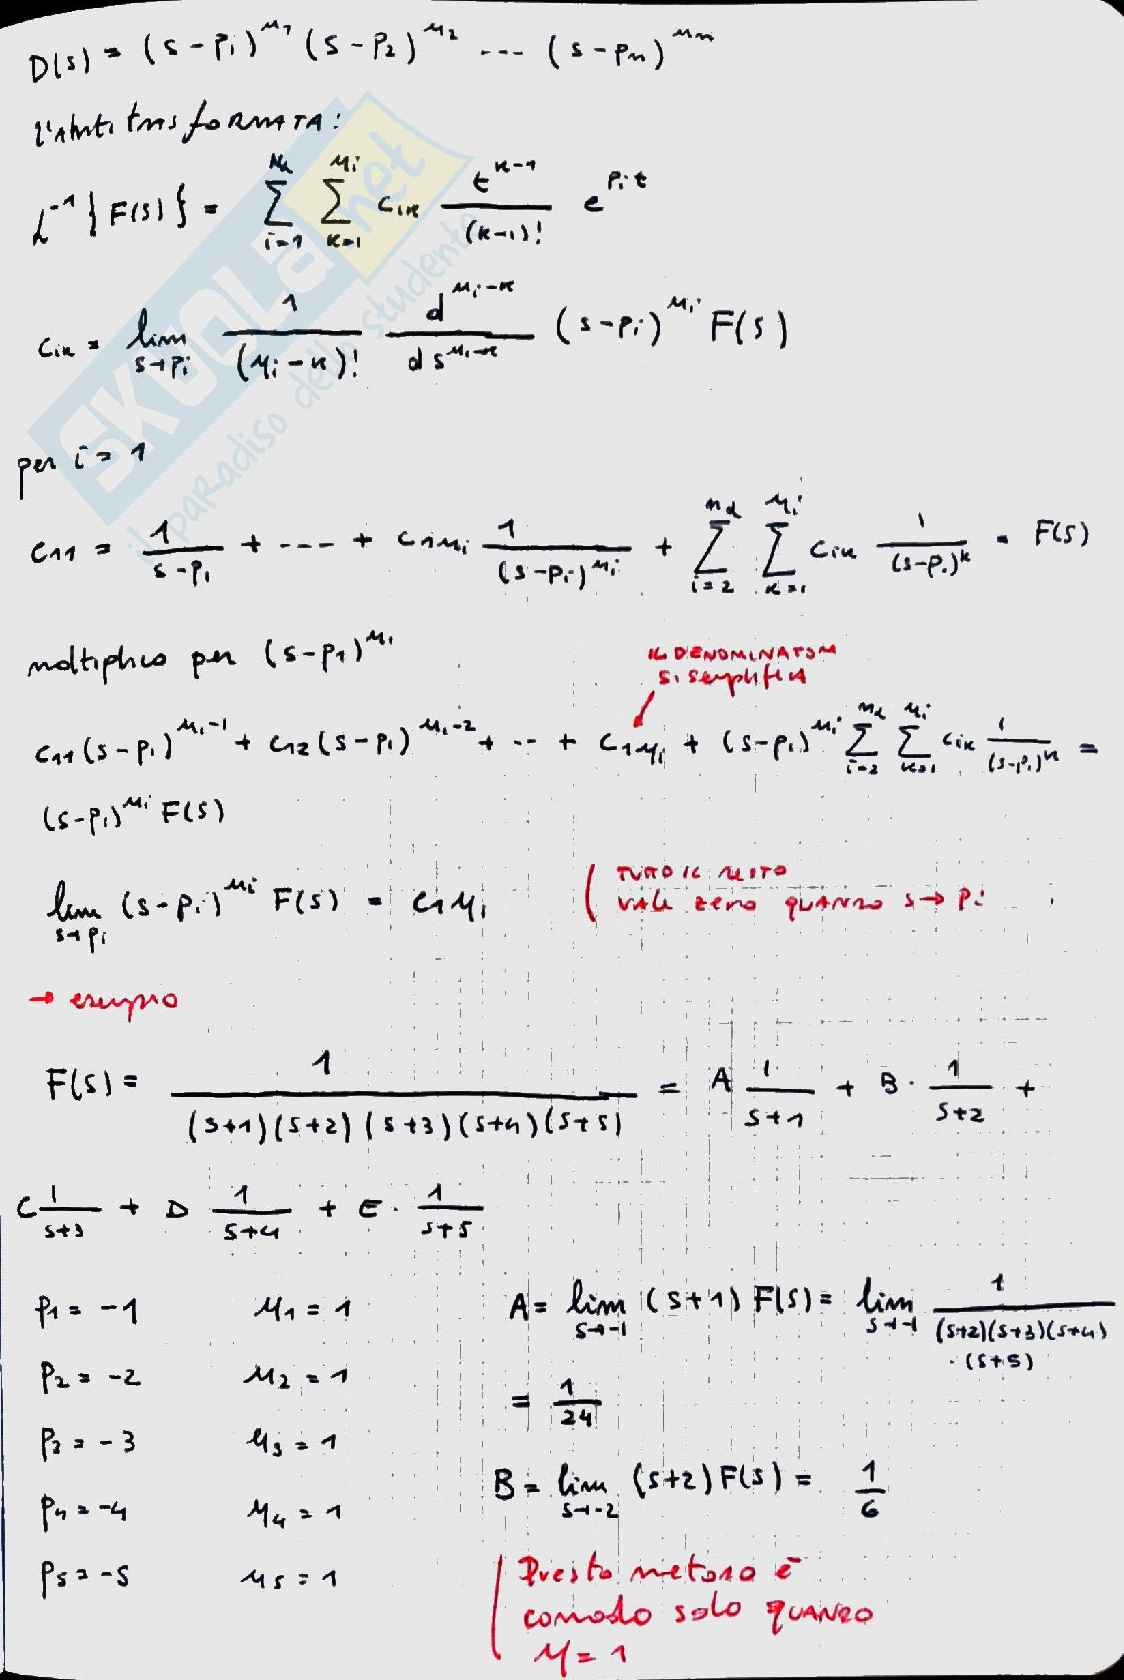 D(s) = (s-p₁)^μ₁ (s-p₂)^μ₂ --- (s-pₙ)^μₙ
l'Antitrasformata:
ℒ⁻¹{F(s)} = Σ_{i=1}^{nd} Σ_{k=1}^{μi} c_{ik} t^{k-1}/(k-1)! e^{pi t}
c_{ik} = lim_{s→pi} 1/(μi-k)! d^{μi-k}/ds^{μi-k} (s-pi)^{μi} F(s)
per i = 1
c₁₁ = 1/(s-p₁) + ---- + c_{1μi} 1/(s-pi)^{μi} + Σ_{i=2}^{nd} Σ_{k=1}^{μi} c_{ik} 1/(s-pi)^k = F(s)
moltiplico per (s-p₁)^{μ₁}
IL DENOMINATOR
si semplifica
c₁₁(s-p₁)^{μ₁-1} + c₁₂(s-p₁)^{μ₁-2} + -- + c_{1μi} + (s-p₁)^{μi} Σ_{i=2}^{nd} Σ_{k=1}^{μi} c_{ik} 1/(s-pi)^k =
(s-p₁)^{μi} F(s)
lim_{s→pi} (s-pi)^{μi} F(s) = c_{1μi}
TUTTO IL RESTO
VALE zero QUANDO s→pi
→ esempio
F(s) = 1/((s+1)(s+2)(s+3)(s+4)(s+5)) = A 1/(s+1) + B · 1/(s+2) +
C 1/(s+3) + D 1/(s+4) + E · 1/(s+5)
p₁ = -1 μ₁ = 1
p₂ = -2 μ₂ = 1
p₃ = -3 μ₃ = 1
p₄ = -4 μ₄ = 1
p₅ = -5 μ₅ = 1
A = lim_{s→-1} (s+1) F(s) = lim_{s→-1} 1/((s+2)(s+3)(s+4)·(s+5))
= 1/24
B = lim_{s→-2} (s+2) F(s) = 1/6
Questo metodo è
comodo solo quando
μ = 1
SKUOLA.net
il paradiso dello studente